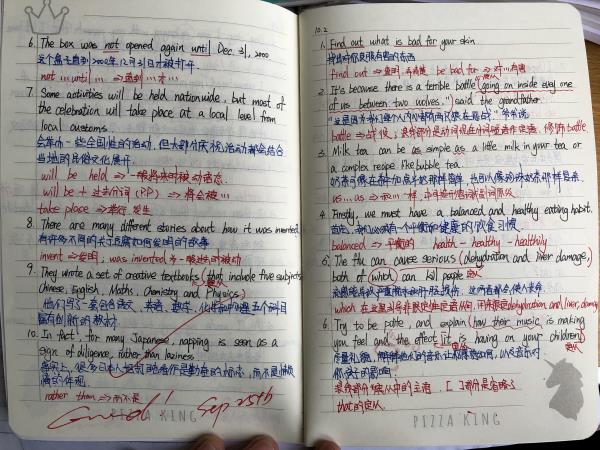 6. The box was not opened again until Dec. 31, 2000
这个盒子直到2000年12月31日才被打开.
not ... until ... ⇒ 直到...才...
7. Some activities will be held nationwide, but most of
the celebration will take place at a local level from
local customs.
会举办一些全国性的活动,但大部分庆祝活动都会结合
当地的民俗文化展开.
will be held ⇒ 一般将来时被动语态.
will be + 过去分词(PP) ⇒ 将会被...
take place ⇒ 举行,发生
8. There are many different stories about how it was invented
有许多不同的关于它是如何发明的故事
invent ⇒ 发明, was invented ⇒ 一般过去时被动
9. They wrote a set of creative textbooks (that include five subjects
Chinese, English, Maths, Chemistry and Physics)
他们写了一套包含语文、英语、数学、化学和物理五个科目
富有创新的教材
10. In fact, for many Japanese, napping is seen as a
sign of diligence, rather than laziness.
事实上,很多日本人把打盹看作是勤奋的标志,而不是懒惰
的体现.
rather than ⇒ 而不是
Good!
Sep 25th
PIZZA KING
10.2
1. Find out what is bad for your skin.
找出对你皮肤有害的东西
find out ⇒ 查明,弄清楚 be bad for ⇒ 对...有害
2. It's because there is a terrible battle (going on inside every one
of us between two wolves.") said the grandfather.
爷爷说
battle ⇒ 战役;
3. Milk tea can be as simple as a little milk in your tea or
a complex recipe like bubble tea.
as ... as ⇒ 和...一样,
4. Firstly, we must have a balanced and healthy eating habit.
首先,我们必须有一个平衡和健康的饮食习惯.
balanced ⇒ 平衡的 health - healthy - healthily
5. The flu can cause serious (dehydration and liver damage,)
both of (which) can kill people
6. Try to be polite, and explain (how their music is making
you feel and the effect it is having on your children)
宾从
that的定从
PIZZA KING